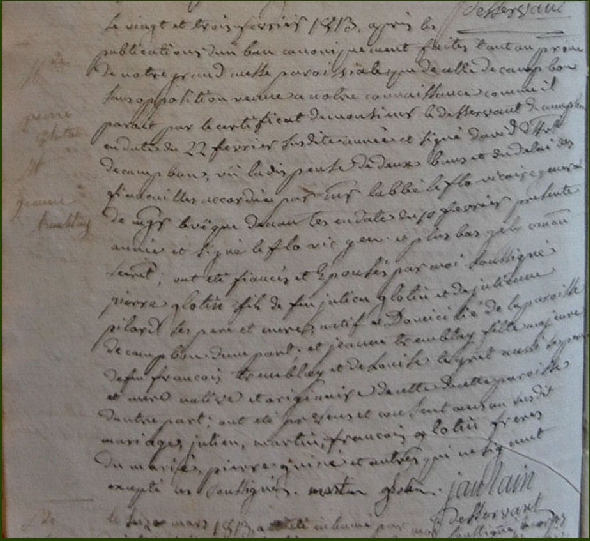 desservant
le vingt et trois fevrier 1813, après les
publications d'un ban canoniquement faites tant au prone
de notre grand messe paroissiale que de celle de campbon
sans opposition venue a notre connaissance comme il
parait par le certificat de monsieur le desservant de campbon
en date du 22 fevrier susdite année et signé david
de campbon, vu la dispense de deux bans et du delai des
fiancailles accordée par mr l'abbé leflo vicaire general
de mgr l'evêque de nantes en date du 10 fevrier presente
année et signé leflo vic. gen. et plus bas
ont été fiancés et epousés par moi soussigné
pierre glotin fils de feu julien glotin et de julienne
pilard ses pere et mere natif et domicilié de la paroisse
de campbon d'une part, et jeanne tremblay fille majeure
de feu francois tremblay et de louise
et mere native et originaire de cette paroisse
d'autre part; ont été presens et consentans au susdit
mariage, julien, martin, francois glotin freres
du marié, pierre et autres qui ne signent
excepté les soussignés. martin glotin. jaulain
desservant
le seize mars 1813, a été inhumé par moi
pierre
glotin
et
jeanne
tremblay